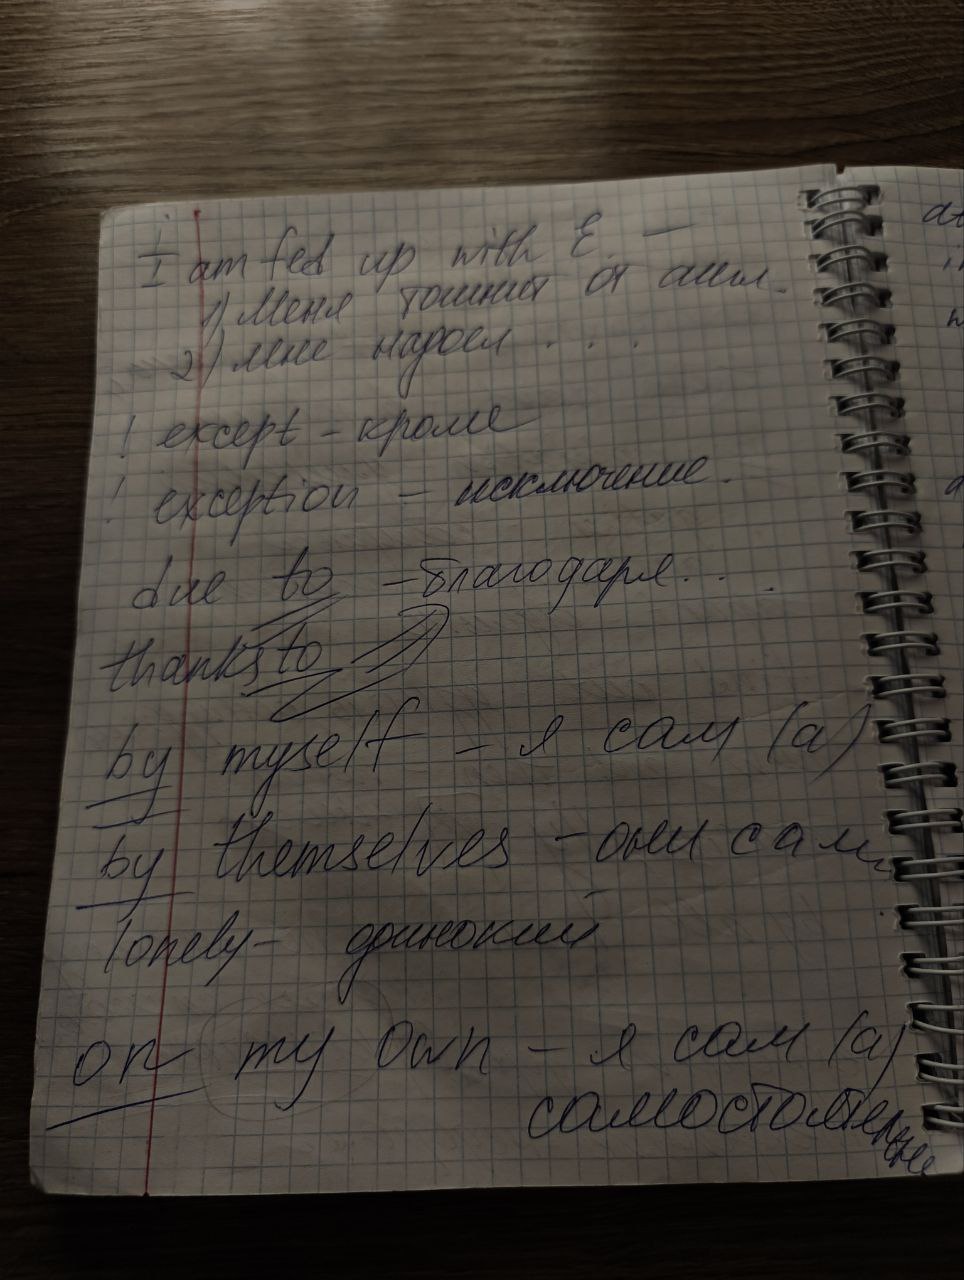 I am fed up with E. —
1) Меня тошнит от англ.
2) мне надоел . . .
! except - кроме
! exception - исключение.
due to - благодаря...
thanks to
by myself - я сам (а)
by themselves - они сами
lonely - одинокий
on my own - я сам (а)
самостоятельно